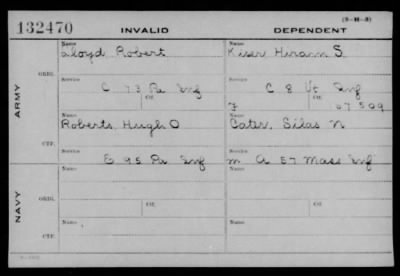 (3-H-3)
132470 INVALID DEPENDENT
Name Name
Lloyd Robert Kiser Hiram S.
ORIG.
Service Service
C 73 Pa Inf C 8 Vt Inf
Of Of
ARMY
Name
Roberts, Hugh O Cater, Silas N
CTF.
Service Service
E 95 Pa Inf A 57 Mass Inf
Name Name
NAVY
ORIG.
Of Of
Name Name
CTF.